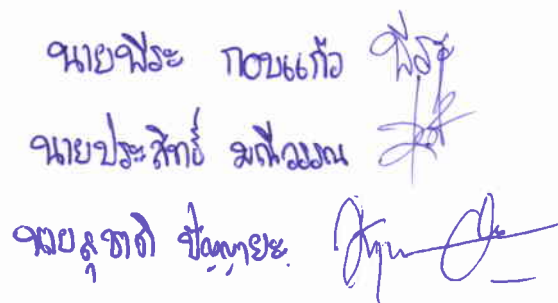 นายพีระ กอบแก้ว พีระ
นายประสิทธิ์ มณีวรรณ
นายสุชาติ ปัญญายะ